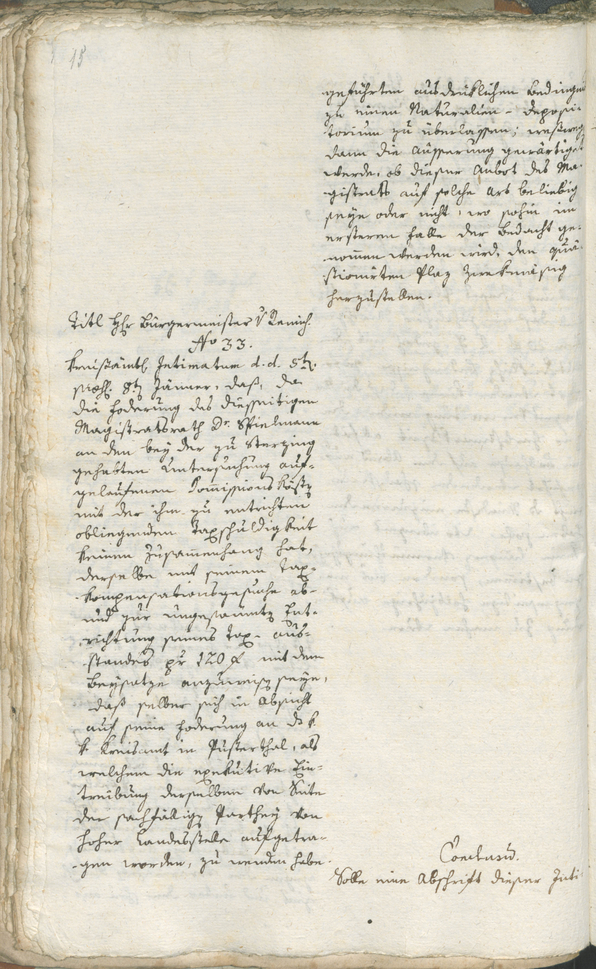 15
geführten ausdrüklichen Bedingen
zu einen Naturalien-Deposi-
torium zu überlassen;
dann die Äusserung gewärtiget
werde, ob dieser Anbot des Ma-
gistrats auf solche Art beliebig
seye oder nicht, wo sohin im
ersteren Falle der Bedacht ge-
nommen werden wird, den quä-
stionirten Plaz zwekmäsig
herzustellen.
Titl Hr Bürgermeister V Remich.
No 33.
Kreisämtl Intimatum d.d. 5tn
Jänner, daß, da
die Foderung des diesseitigen
Magistratsrath Dr. Spielmann
an den bey der zu Sterzing
gehabten Untersuchung auf-
gelaufenen Kommissionskösten
mit der ihm zu entrichten
obliegenden Taxschuldigkeit
keinen Zusammenhang hat,
derselbe mit seinem Tax-
kompensationsgesuche ab-
und zur ungesäumten Ent-
richtung seines Tax-Aus-
standes pr 120 f mit dem
Beysatze anzuweisen seye,
daß selber sich in Absicht
auf seine Foderung an das k
k Kreisamt in Pusterthal, als
welchem die exekutive Ein-
treibung derselben von Seite
der sachfälligen Parthey von
hoher Landesstelle aufgetra-
gen worden, zu wenden habe.
Conclusum.
Solle eine Abschrift dieser Inti-